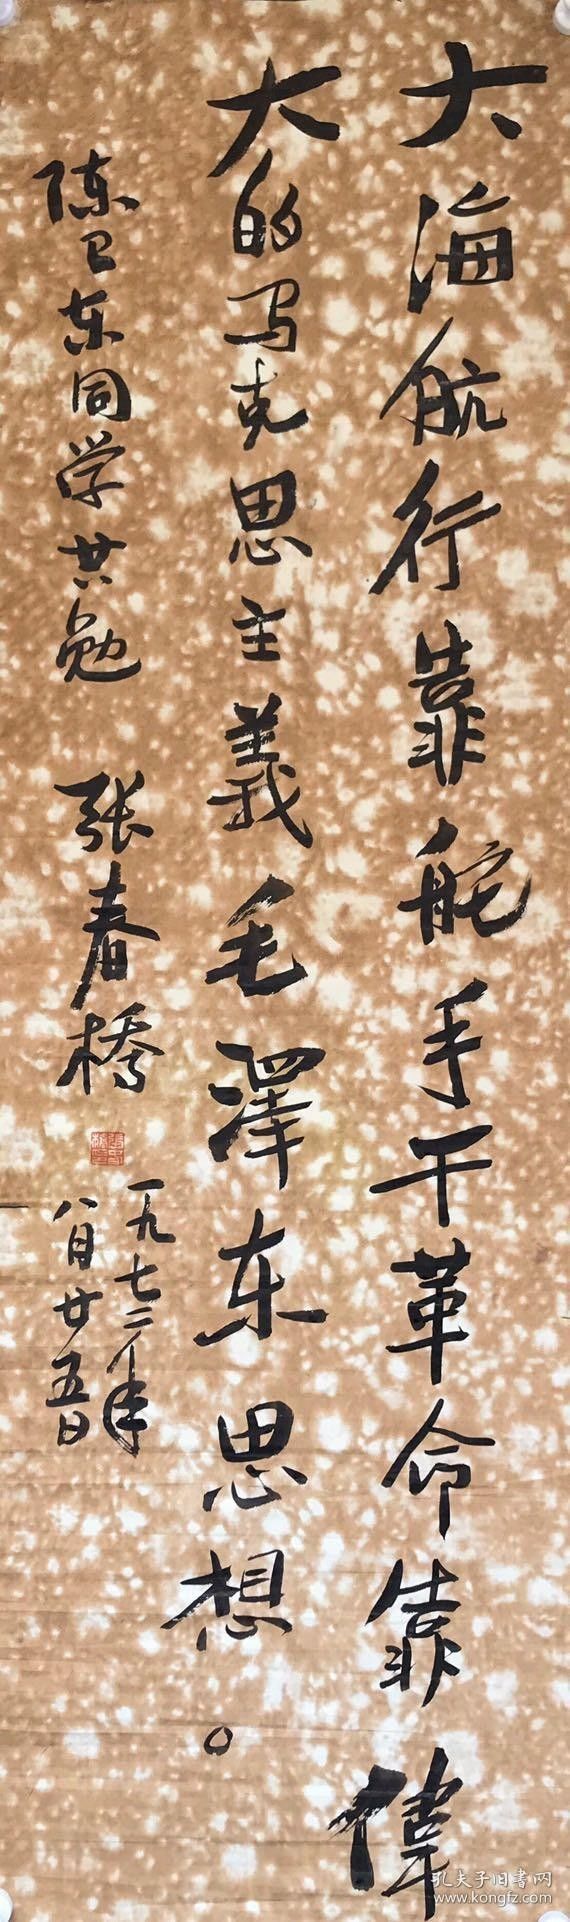 大海航行靠舵手干革命靠偉
大的马克思主義毛澤东思想。
陈卫东同学共勉
张春橋
一九七二年
八月廿五日
孔夫子旧書网
www.kongfz.com